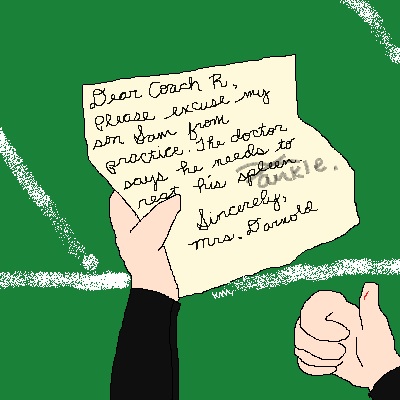 Dear Coach R,
Please excuse my
son Sam from
practice. The doctor
says he needs to
rest his spleen.
ankle.
Sincerely,
Mrs. Darnold